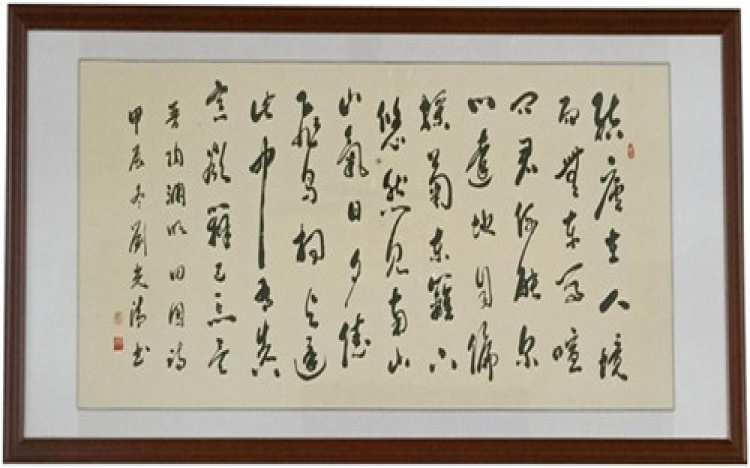 結廬在人境
而無車馬喧
問君何能尔
心遠地自偏
採菊東籬下
悠然見南山
山氣日夕佳
飛鳥相與還
此中有真
意欲辯已忘言
晉陶淵明田園詩
甲辰冬劉书